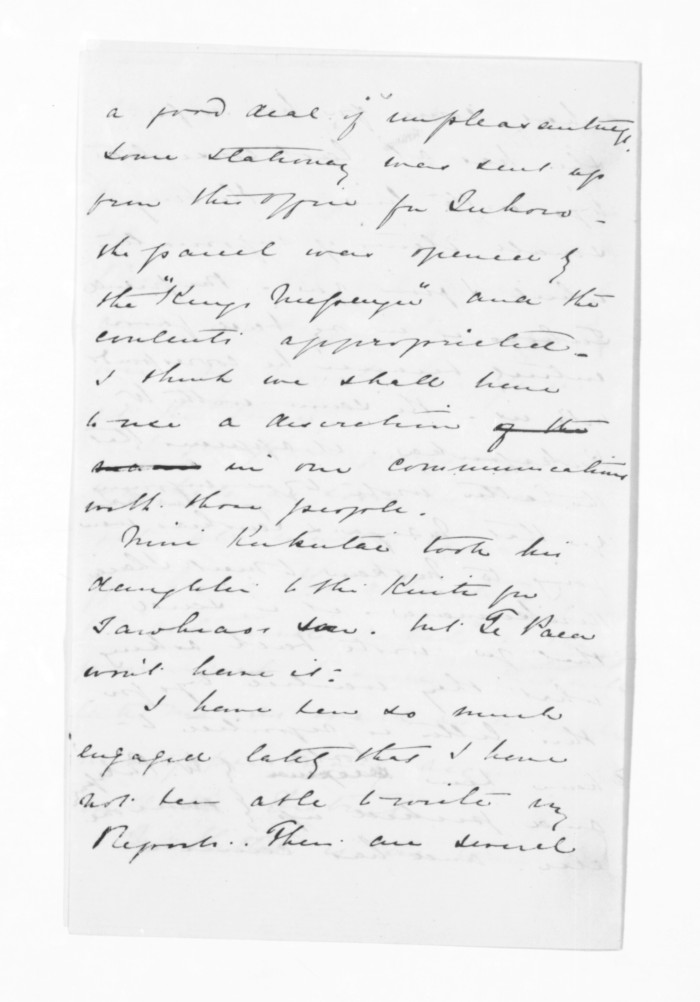 a good deal of "unpleasantness.
Some stationery was sent up
from this Office for
the parcel was opened by
the "Kings Messenger" and the
contents appropriated -
I think we shall have
to use a discretion of the
in our communications
with those people.
Kukutai took his
daughter to the for
Tawhiaos son. but Te Paea
wont have it:
I have been so much
engaged lately that I have
not been able to write my
Reports. There are several